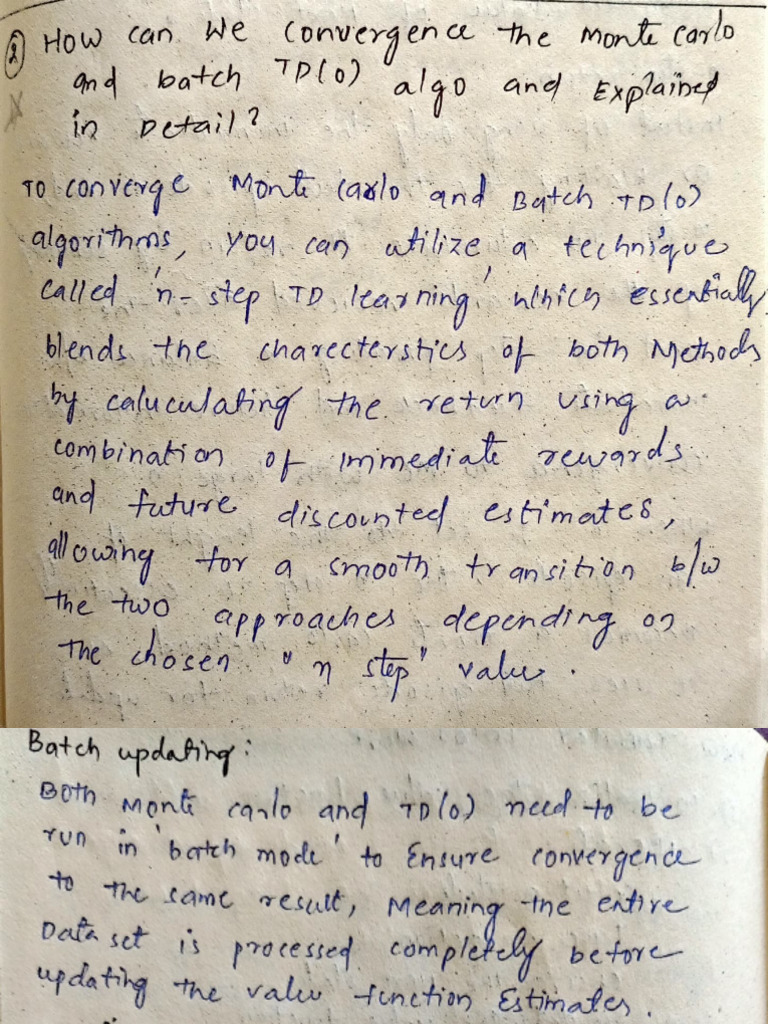 2 How can we convergence the Monte Carlo
and batch TD(0) algo and Explained
in Detail?
To converge Monte Carlo and Batch TD(0)
algorithms, you can utilize a technique
called 'n-step TD learning' which essentially
blends the charecterstics of both Methods
by caluculating the return using a
combination of immediate rewards
and future discounted estimates,
allowing for a smooth transition b/w
the two approaches depending on
the chosen "n step" value.
Batch updating:
Both Monte carlo and TD(0) need to be
run in 'batch mode' to Ensure convergence
to the same result, Meaning the entire
Data set is processed completely before
updating the value function Estimates.